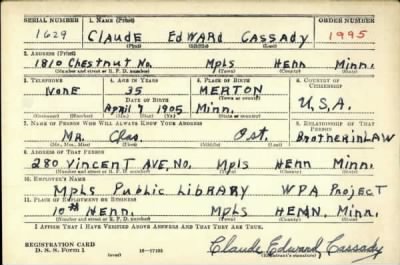 SERIAL NUMBER 1. NAME (Print) ORDER NUMBER
1629 CLAUDE EDWARD CASSADY 1995
(First) (Middle) (Last)
2. ADDRESS (Print)
1810 Chestnut No. Mpls Henn Minn.
(Number and street or R. F. D. number) (Town) (County) (State)
3. TELEPHONE 4. AGE IN YEARS 5. PLACE OF BIRTH 6. COUNTRY OF CITIZENSHIP
NONE 35 MERTON
DATE OF BIRTH (Town or county)
April 7 1905 Minn. U.S.A.
(Exchange) (Number) (Mo.) (Day) (Yr.) (State or country)
7. NAME OF PERSON WHO WILL ALWAYS KNOW YOUR ADDRESS 8. RELATIONSHIP OF THAT PERSON
Mr. Chas. Ost. Brother in LAW
(Mr., Mrs., Miss) (First) (Middle) (Last)
9. ADDRESS OF THAT PERSON
280 VINCENT AVE, NO. Mpls HENN Minn.
(Number and street or R. F. D. number) (Town) (County) (State)
10. EMPLOYER'S NAME
Mpls Public LIBRARY WPA PROJECT
11. PLACE OF EMPLOYMENT OR BUSINESS
10th Henn. Mpls HENN, Minn.
(Number and street or R. F. D. number) (Town) (County) (State)
I AFFIRM THAT I HAVE VERIFIED ABOVE ANSWERS AND THAT THEY ARE TRUE.
REGISTRATION CARD
D. S. S. Form 1 (over) Claude Edward Cassady
(Registrant's signature)